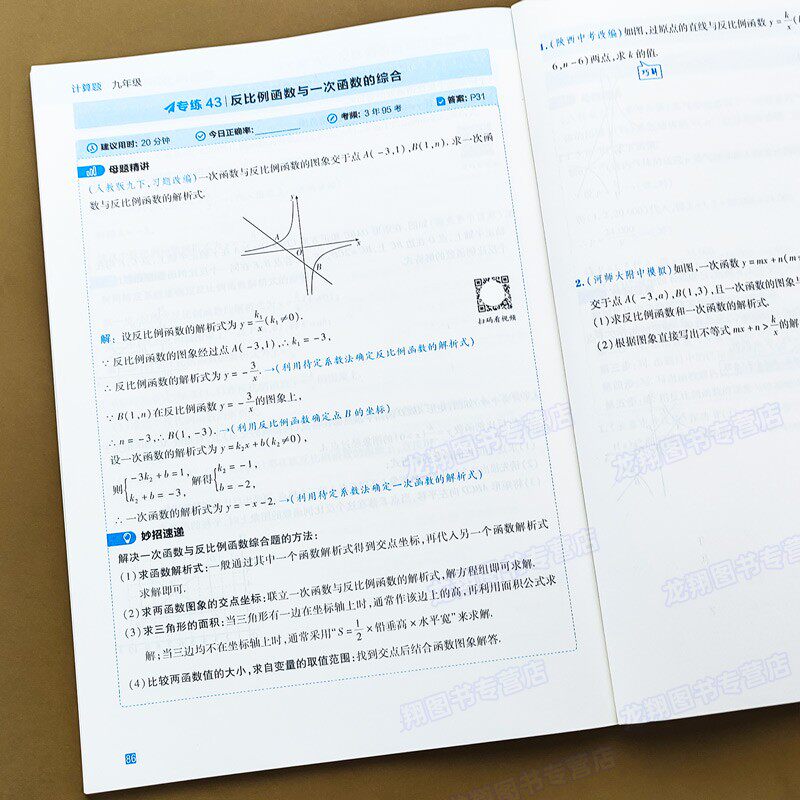 计算题 九年级
专练 43 | 反比例函数与一次函数的综合
建议用时: 20 分钟 今日正确率:________ 考频: 3 年 95 考 答案: P31
母题精讲
(人教版九下,习题改编)一次函数与反比例函数的图象交于点 A(-3,1),B(1,n). 求一次函
数与反比例函数的解析式.
y
A
O
x
B
扫码看视频
解: 设反比例函数的解析式为 y=k₁/x(k₁≠0).
∵反比例函数的图象经过点 A(-3,1),∴k₁=-3,
∴反比例函数的解析式为 y=-3/x. →(利用待定系数法确定反比例函数的解析式)
∵B(1,n)在反比例函数 y=-3/x的图象上,
∴n=-3,∴B(1,-3). →(利用反比例函数确定点 B 的坐标)
设一次函数的解析式为 y=k₂x+b(k₂≠0),
则{-3k₂+b=1, k₂+b=-3, 解得{k₂=-1, b=-2,
∴一次函数的解析式为 y=-x-2. →(利用待定系数法确定一次函数的解析式)
妙招速递
解决一次函数与反比例函数综合题的方法:
(1)求函数解析式:一般通过其中一个函数解析式得到交点坐标,再代入另一个函数解析式
求解即可.
(2)求两函数图象的交点坐标:联立一次函数与反比例函数的解析式,解方程组即可求解.
(3)求三角形的面积:当三角形有一边在坐标轴上时,通常作该边上的高,再利用面积公式求
解;当三边均不在坐标轴上时,通常采用“S=1/2×铅垂高×水平宽”来求解.
(4)比较两函数值的大小,求自变量的取值范围:找到交点后结合函数图象解答.
86
1.(陕西中考改编)如图,过原点的直线与反比例函数 y=k/x(
6,n-6)两点,求 k 的值.
巧解
2.(河师大附中模拟)如图,一次函数 y=mx+n(m
交于点 A(-3,a),B(1,3),且一次函数的图象与
(1)求反比例函数和一次函数的解析式.
(2)根据图象直接写出不等式 mx+n>k/x的解
龙翔图书专营店
龙翔图书专营店
龙翔图书专营店
龙翔图书专营店
翔图书专营店
龙翔图书专营店